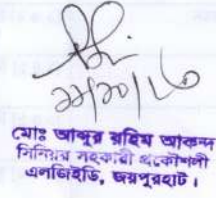 মোঃ আব্দুর রহিম আকন্দ
সিনিয়র সহকারী প্রকৌশলী
এলজিইডি, জয়পুরহাট।